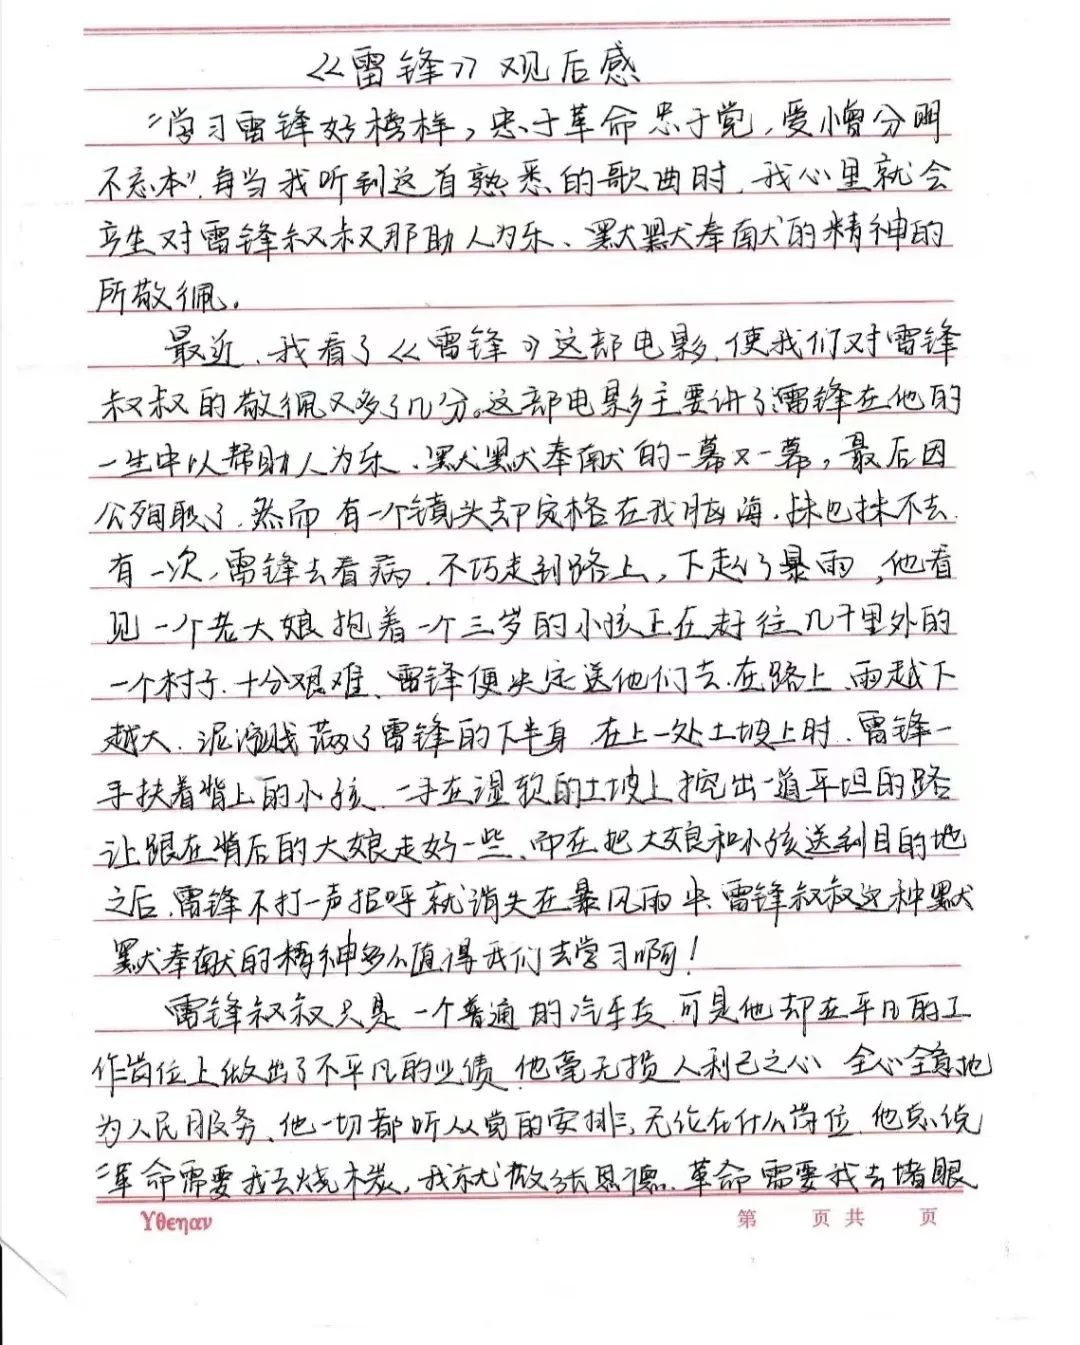 《雷锋》观后感
“学习雷锋好榜样，忠于革命忠于党，爱憎分明
不忘本”，每当我听到这首熟悉的歌曲时，我心里就会
产生对雷锋叔叔那助人为乐、默默奉献的精神的
所敬佩。
最近，我看了《雷锋》这部电影，使我们对雷锋
叔叔的敬佩又多了几分。这部电影主要讲了雷锋在他的
一生中以帮助人为乐、默默奉献的一幕又一幕，最后因
公殉职了。然而有一个镜头却定格在我脑海，抹也抹不去。
有一次，雷锋去看病，不巧走到路上，下起了暴雨，他看
见一个老大娘抱着一个三岁的小孩正在赶往几十里外的
一个村子，十分艰难、雷锋便决定送他们去。在路上、雨越下
越大，泥泞溅满了雷锋的下半身，在上一处土坡上时，雷锋一
手扶着背上的小孩，一手在湿软的土坡上挖出一道平坦的路
让跟在背后的大娘走好一些、而在把大娘和小孩送到目的地
之后，雷锋不打一声招呼就消失在暴风雨中。雷锋叔叔这种默
默奉献的精神多么值得我们去学习啊！
雷锋叔叔只是一个普通的汽车兵，可是他却在平凡的工
作岗位上做出了不平凡的业绩，他毫无损人利己之心，全心全意地
为人民服务、他一切都听从党的安排，无论在什么岗位，他总说
“革命需要我去烧木炭，我就做张思德、革命需要我去堵眼
Yθεηαν
第 页 共 页